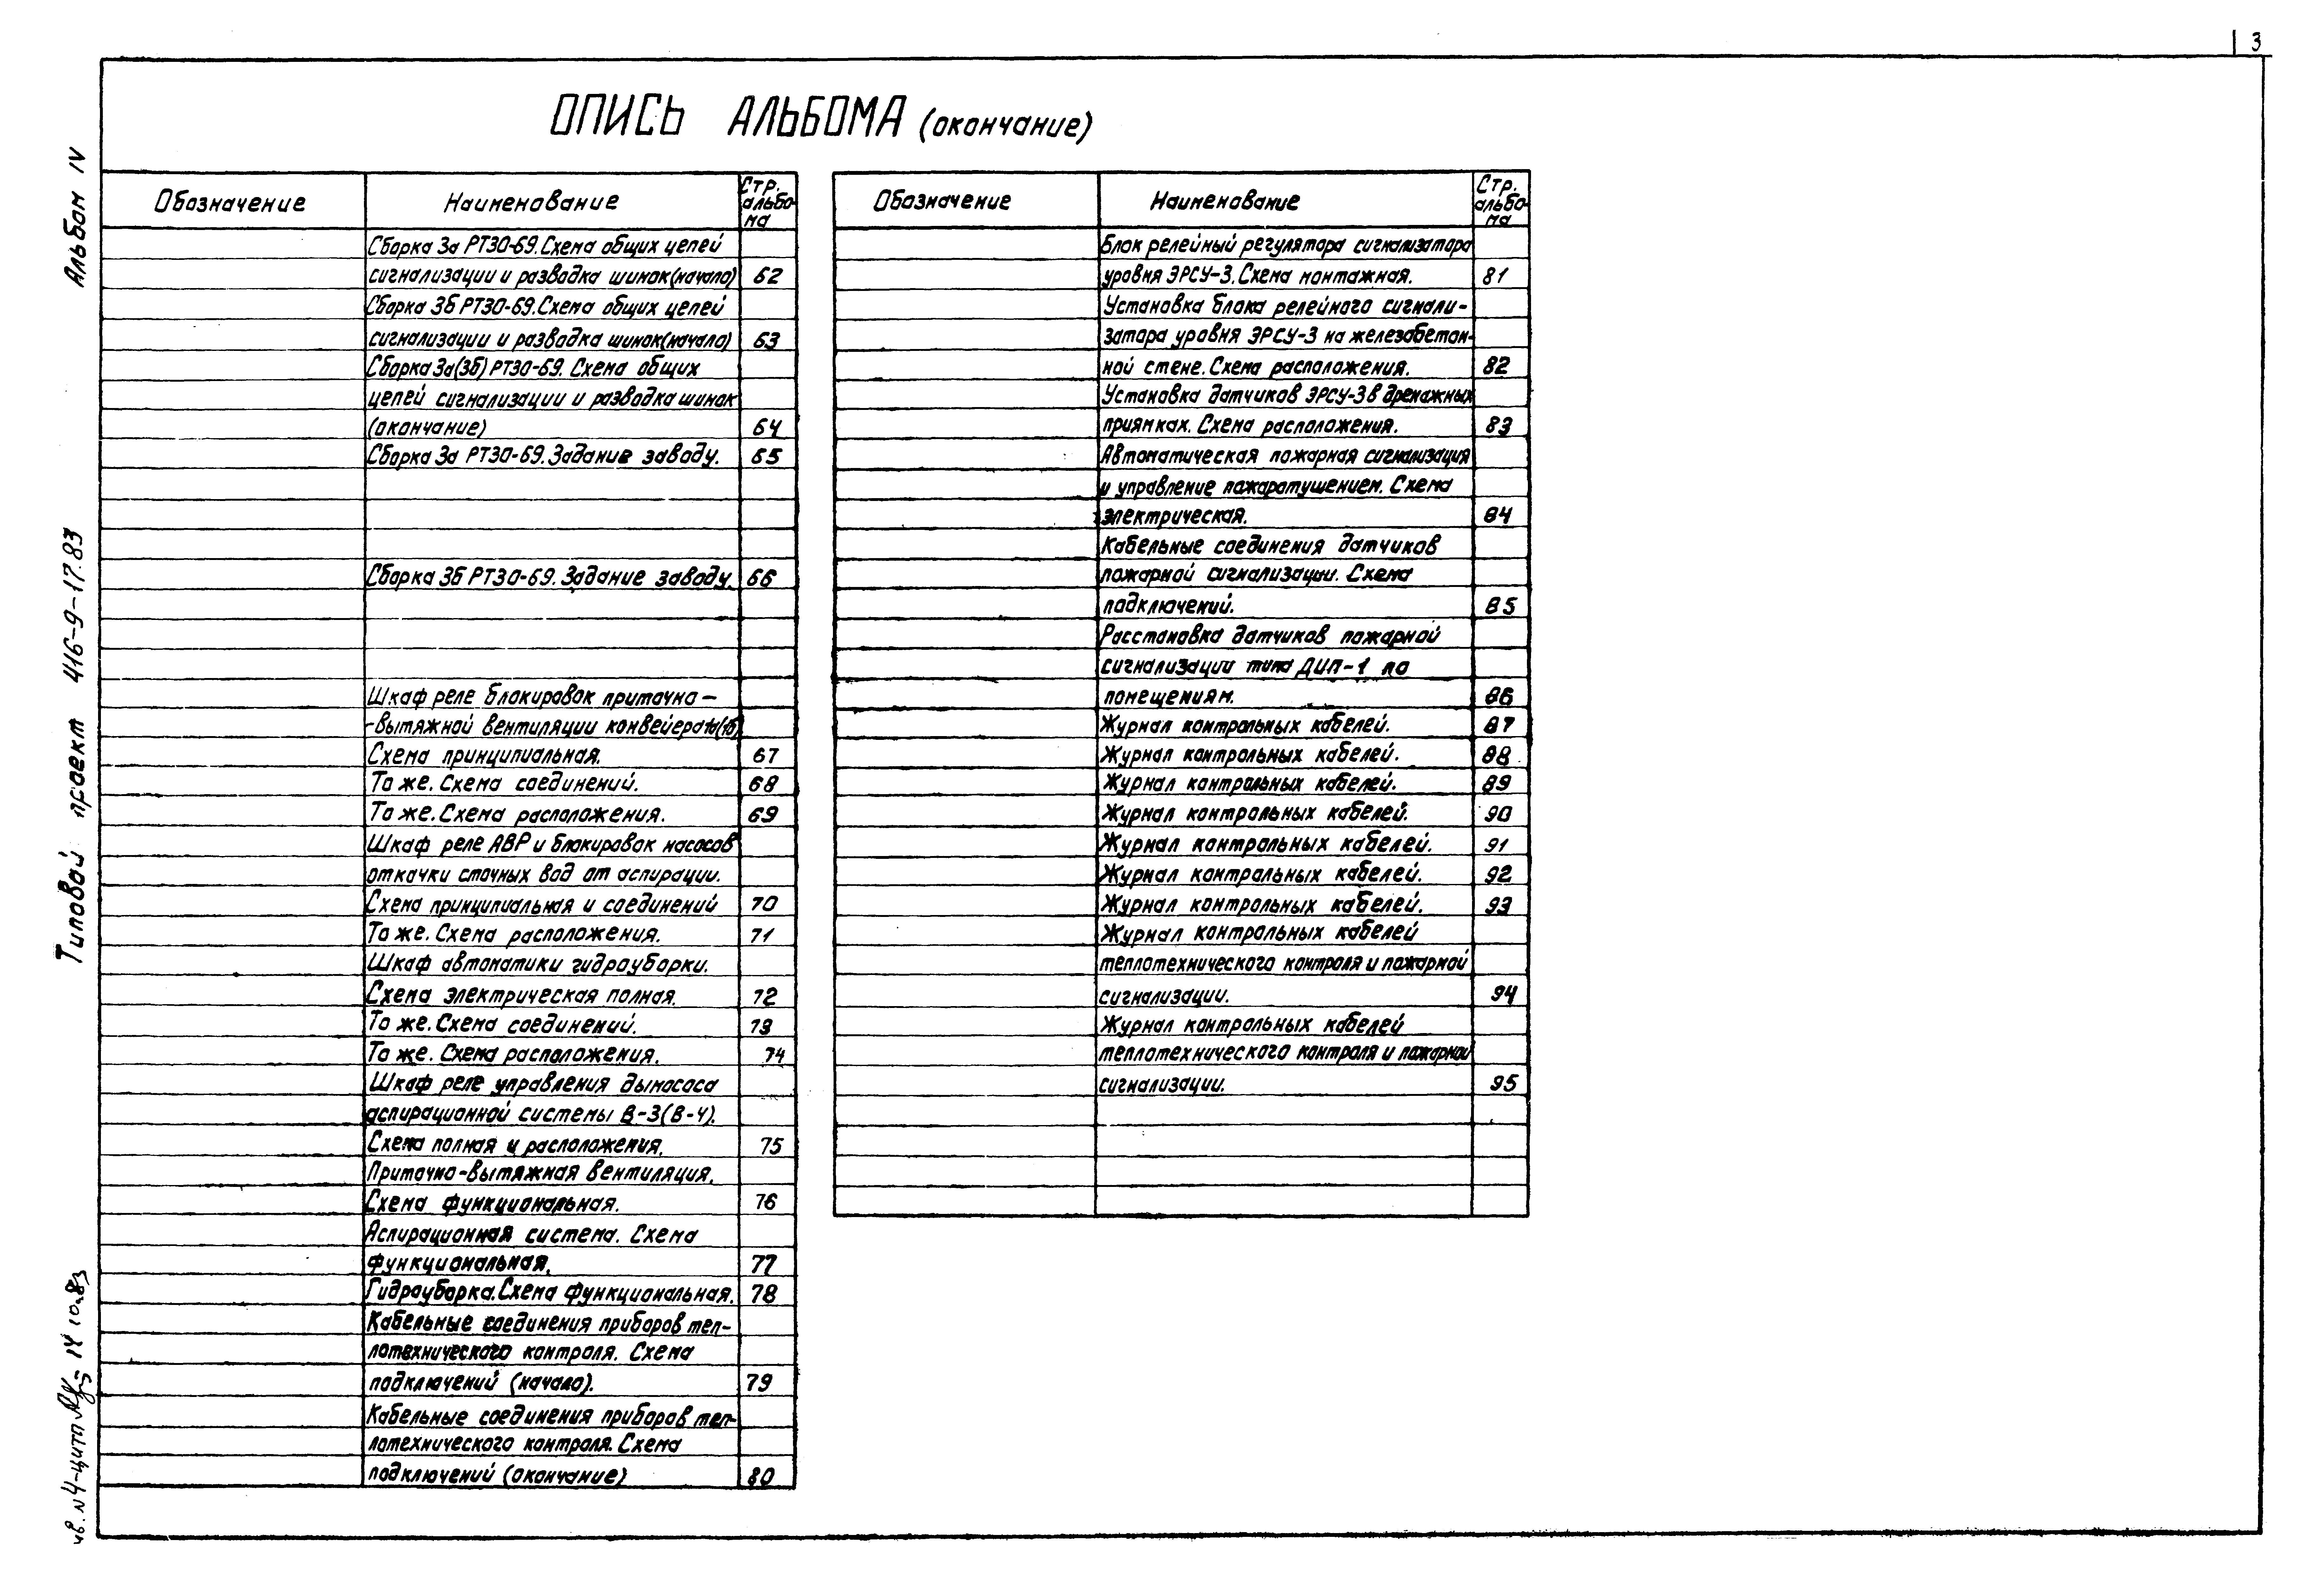 3
ОПИСЬ АЛЬБОМА (окончание)
Альбом IV
Типовой проект 416-9-17.83
Обозначение Наименование Стр. альбо-ма
Сборка 3а РТ30-69. Схема общих цепей
сигнализации и разводка шинок (начало) 62
Сборка 3б РТ30-69. Схема общих цепей
сигнализации и разводка шинок (начало) 63
Сборка 3а(3б) РТ30-69. Схема общих
цепей сигнализации и разводка шинок
(окончание) 64
Сборка 3а РТ30-69. Задание заводу. 65
Сборка 3б РТ30-69. Задание заводу. 66
Шкаф реле блокировок приточно-
-вытяжной вентиляции конвейера 1а(1б)
Схема принципиальная. 67
То же. Схема соединений. 68
То же. Схема расположения. 69
Шкаф реле АВР и блокировок насосов
откачки сточных вод от аспирации.
Схема принципиальная и соединений 70
То же. Схема расположения. 71
Шкаф автоматики гидроуборки.
Схема электрическая полная. 72
То же. Схема соединений. 73
То же. Схема расположения. 74
Шкаф реле управления дымососа
аспирационной системы В-3(В-4).
Схема полная и расположения. 75
Приточно-вытяжная вентиляция.
Схема функциональная. 76
Аспирационная система. Схема
функциональная. 77
Гидроуборка. Схема функциональная. 78
Кабельные соединения приборов теп-
лотехнического контроля. Схема
подключений (начало). 79
Кабельные соединения приборов теп-
лотехнического контроля. Схема
подключений (окончание) 80
Обозначение Наименование Стр. альбо-ма
Блок релейный регулятора сигнализатора
уровня ЭРСУ-3. Схема монтажная. 81
Установка блока релейного сигнали-
затора уровня ЭРСУ-3 на железобетон-
ной стене. Схема расположения. 82
Установка датчиков ЭРСУ-3 в дренажных
приямках. Схема расположения. 83
Автоматическая пожарная сигнализация
и управление пожаротушением. Схема
электрическая. 84
Кабельные соединения датчиков
пожарной сигнализации. Схема
подключений. 85
Расстановка датчиков пожарной
сигнализации типа ДИП-1 по
помещениям. 86
Журнал контрольных кабелей. 87
Журнал контрольных кабелей. 88
Журнал контрольных кабелей. 89
Журнал контрольных кабелей. 90
Журнал контрольных кабелей. 91
Журнал контрольных кабелей. 92
Журнал контрольных кабелей. 93
Журнал контрольных кабелей
теплотехнического контроля и пожарной
сигнализации. 94
Журнал контрольных кабелей
теплотехнического контроля и пожарной
сигнализации. 95